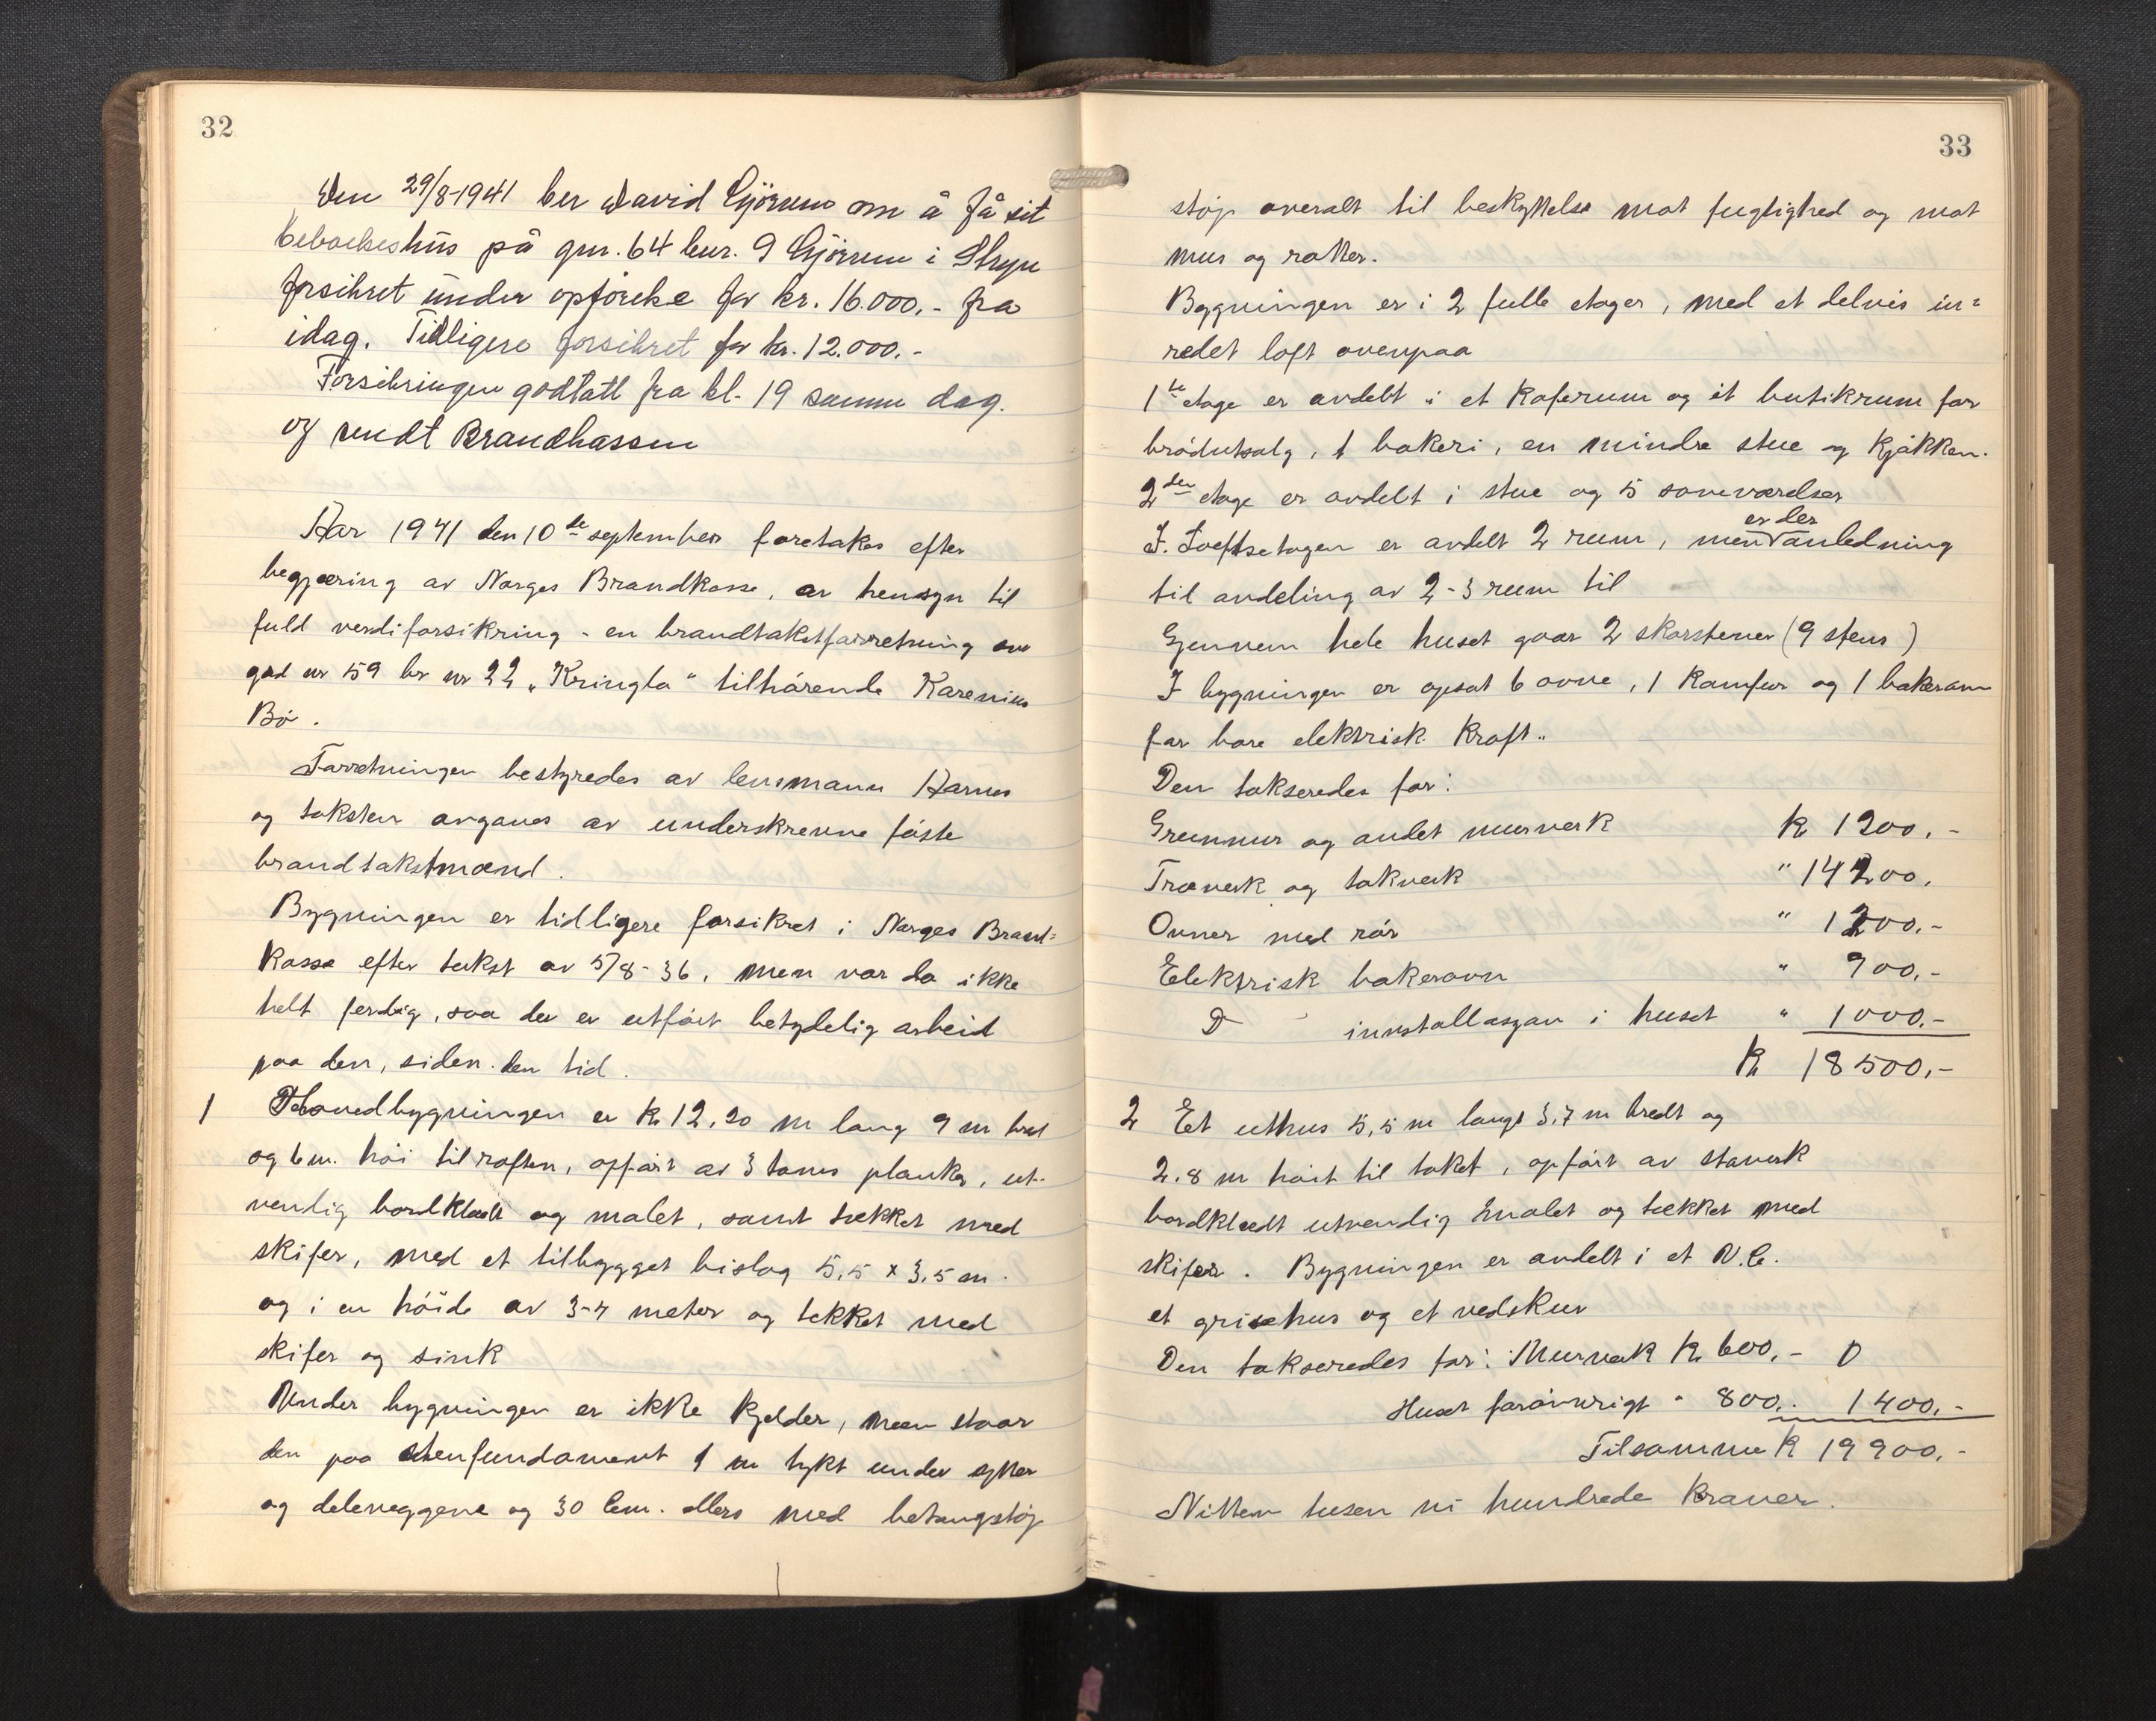 32
Den 29/8-1941 ber David Gjørven om å få sit
beboelseshus på gnr. 64 bnr. 9 Gjørven i Stryn
forsikret under opførelse for kr. 16.000,- fra
idag. Tidligere forsikret for kr. 12.000,-
Forsikringen godtatt fra kl. 19 samme dag.
og sendt Brandkassen
Aar 1941 den 10de september foretakes efter
begjæring av Norges Brandkasse, av hensyn til
fuld verdiforsikring - en brandtakstforretning over
grd nr 59 br nr 22 „Kringla" tilhørende Karenius
Bø.
Forretningen bestyredes av lensmann Harnes
og taksten avgaves av underskrevne faste
brandtakstmænd.
Bygningen er tidligere forsikret i Norges Brand=
kasse efter takst av 5/8-36, men var da ikke
helt ferdig, saa der er utført betydelig arbeid
paa den, siden den tid.
1 Hovedbygningen er 12,20 m lang 9 m bred
og 6 m. høi til raften, opført av 3 toms planker, ut-
vendig bordklædt og malet, samt tækket med
skifer, med et tilbygget bislag 5,5 x 3,5 m.
og i en høide av 3-4 meter og tekket med
skifer og sink
Under bygningen er ikke kjelder, men staar
den paa stenfundament 1 m tykt under ytter
og deleveggene og 30 Cem. ellers med betongstøp
33
støp overalt til beskyttelse mot fugtighed og mot
mus og rotter.
Bygningen er i 2 fulle etager, med et delvis in=
redet loft ovenpaa
1ste etage er avdelt i et Kaferum og et butikrum for
brødutsalg, 1 bakeri, en mindre stue og kjøkken.
2den etage er avdelt i stue og 5 soveværelser
I. Loeftsetagen er avdelt 2 rum, men er der anledning
til avdeling av 2-3 rum til
Gjennem hele huset gaar 2 skorstener (9 stens)
I bygningen er opsat 6 ovne, 1 Kamfur og 1 bakerovn
for bare elektrisk kraft.
Den takseredes for:
Grunmur og andet murverk K 1200,-
Træverk og takverk " 14200,
Ovner med rør " 1200,-
Elektrisk bakerovn " 900,-
D innstallasjon i huset " 1000,-
K 18500,-
2 Et uthus 5,5 m langt 3,7 m bredt og
2.8 m høit til taket, opført av staverk
bordklædt utvendig malet og tækket med
skifer. Bygningen er avdelt i et V.C.
et grisehus og et vedskur
Den takseredes for: Murverk K 600,- 0
Huset forøvrigt " 800,- 1400,-
Tilsammen K 19900,-
Nitten tusen ni hundrede kroner.